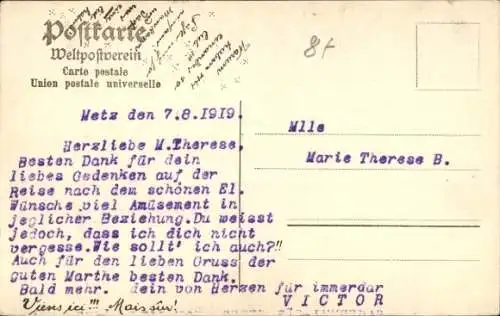 Postkarte
Weltpostverein
Carte postale
Union postale universelle
8+
Metz den 7.8.1919.
Herzliebe M.Therese,
Besten Dank für dein
liebes Gedenken auf der
Reise nach dem schönen El.
Wünsche viel Amüsement in
jeglicher Beziehung.Du weisst
jedoch, dass ich dich nicht
vergesse.Wie sollt' ich auch?!!
Auch für den lieben Gruss der
guten Marthe besten Dank.
Bald mehr. dein von Herzen für immerdar
VICTOR
Viens ici!!! Mais sûr!
Mlle
Marie Therese B.